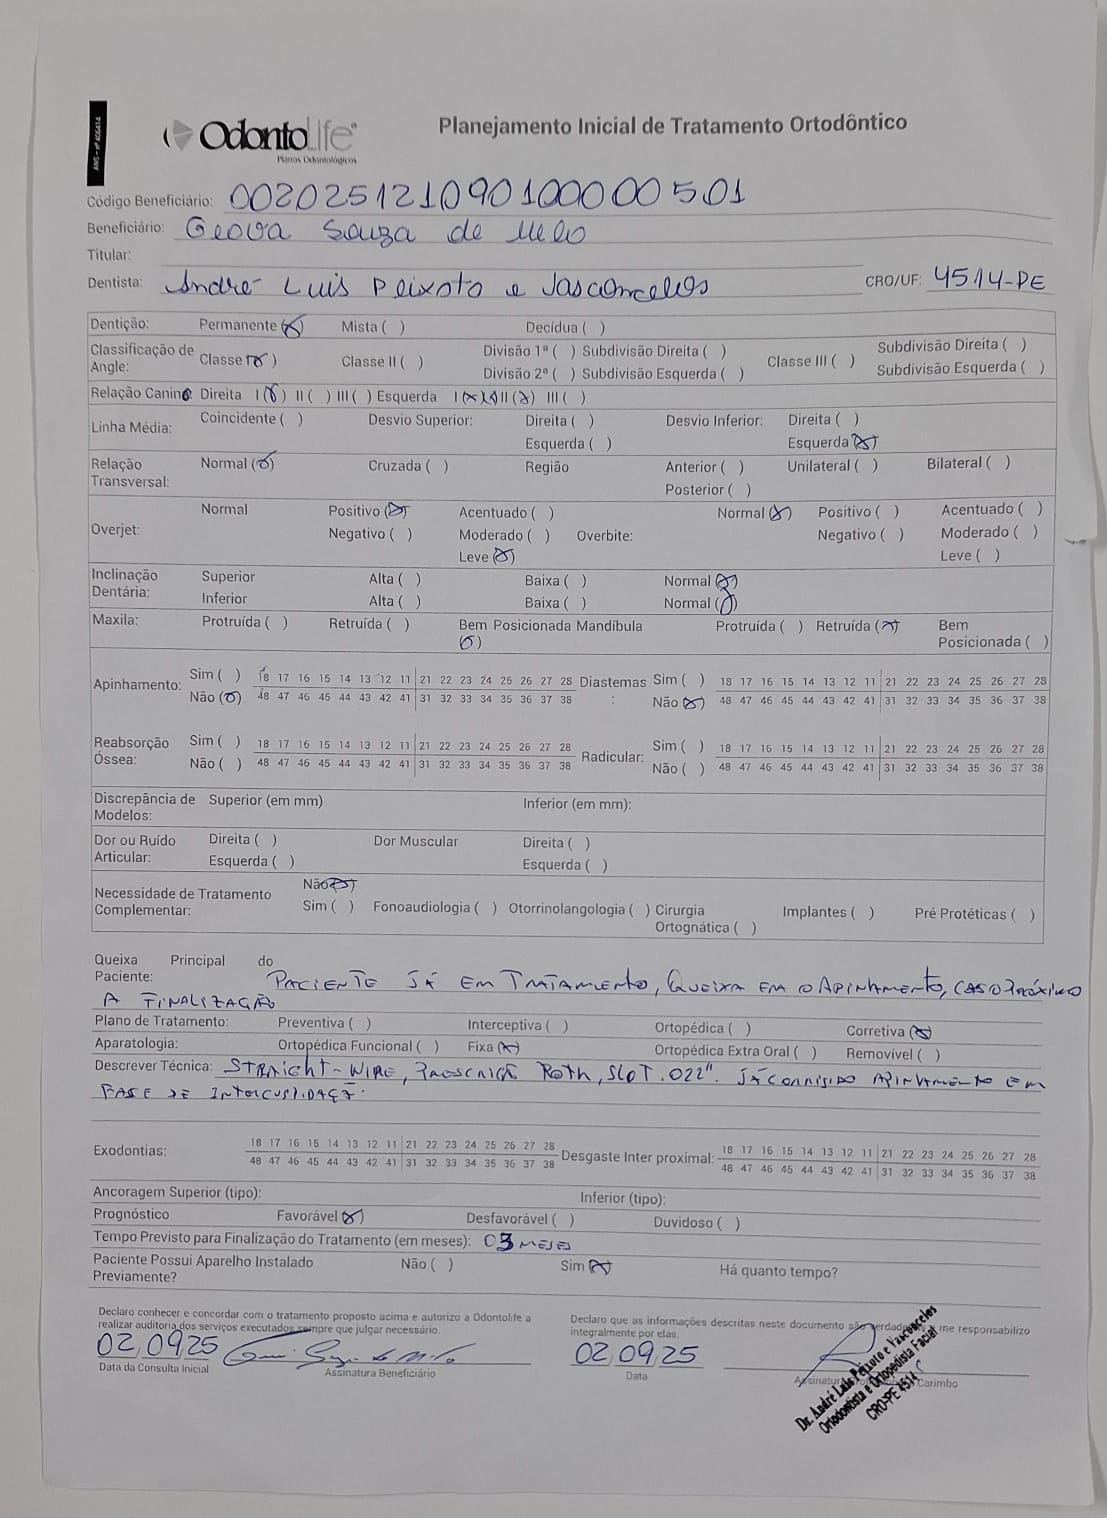 ANS - nº 406414
OdontoLife®
Planos Odontológicos
Planejamento Inicial de Tratamento Ortodôntico
Código Beneficiário: 00202512109010000501
Beneficiário: Geova Souza de Melo
Titular:
Dentista: André Luis Peixoto e Vasconcelos CRO/UF: 4514-PE
Dentição: Permanente (x) Mista ( ) Decídua ( )
Classificação de Angle: Classe I (x) Classe II ( ) Divisão 1ª ( ) Subdivisão Direita ( ) Classe III ( ) Subdivisão Direita ( )
Divisão 2ª ( ) Subdivisão Esquerda ( ) Subdivisão Esquerda ( )
Relação Canino Direita I (x) II ( ) III ( ) Esquerda I (x) II (x) III ( )
Linha Média: Coincidente ( ) Desvio Superior: Direita ( ) Desvio Inferior: Direita ( )
Esquerda ( ) Esquerda (x)
Relação Transversal: Normal (x) Cruzada ( ) Região Anterior ( ) Unilateral ( ) Bilateral ( )
Posterior ( )
Overjet: Normal Positivo (x) Acentuado ( ) Overbite: Normal (x) Positivo ( ) Acentuado ( )
Negativo ( ) Moderado ( ) Negativo ( ) Moderado ( )
Leve (x) Leve ( )
Inclinação Dentária: Superior Alta ( ) Baixa ( ) Normal (x)
Inferior Alta ( ) Baixa ( ) Normal (x)
Maxila: Protruída ( ) Retruída ( ) Bem Posicionada (x) Mandíbula Protruída ( ) Retruída (x) Bem Posicionada ( )
Apinhamento: Sim ( ) 18 17 16 15 14 13 12 11 21 22 23 24 25 26 27 28 Diastemas : Sim ( ) 18 17 16 15 14 13 12 11 21 22 23 24 25 26 27 28
Não (x) 48 47 46 45 44 43 42 41 31 32 33 34 35 36 37 38 Não (x) 48 47 46 45 44 43 42 41 31 32 33 34 35 36 37 38
Reabsorção Óssea: Sim ( ) 18 17 16 15 14 13 12 11 21 22 23 24 25 26 27 28 Radicular: Sim ( ) 18 17 16 15 14 13 12 11 21 22 23 24 25 26 27 28
Não ( ) 48 47 46 45 44 43 42 41 31 32 33 34 35 36 37 38 Não ( ) 48 47 46 45 44 43 42 41 31 32 33 34 35 36 37 38
Discrepância de Modelos: Superior (em mm) Inferior (em mm):
Dor ou Ruído Articular: Direita ( ) Dor Muscular Direita ( )
Esquerda ( ) Esquerda ( )
Necessidade de Tratamento Complementar: Não (x)
Sim ( ) Fonoaudiologia ( ) Otorrinolangologia ( ) Cirurgia Ortognática ( ) Implantes ( ) Pré Protéticas ( )
Queixa Principal do Paciente: PACIENTE JÁ EM TRATAMENTO, QUEIXA ERA O APINHAMENTO, CASO PRÓXIMO
A FINALIZAÇÃO
Plano de Tratamento: Preventiva ( ) Interceptiva ( ) Ortopédica ( ) Corretiva (x)
Aparatologia: Ortopédica Funcional ( ) Fixa (x) Ortopédica Extra Oral ( ) Removível ( )
Descrever Técnica: STRAIGHT-WIRE, PRESCRIÇÃO ROTH, SLOT .022". JÁ CORRIGIDO APINHAMENTO EM
FASE DE
Exodontias: 18 17 16 15 14 13 12 11 21 22 23 24 25 26 27 28 Desgaste Inter proximal: 18 17 16 15 14 13 12 11 21 22 23 24 25 26 27 28
48 47 46 45 44 43 42 41 31 32 33 34 35 36 37 38 48 47 46 45 44 43 42 41 31 32 33 34 35 36 37 38
Ancoragem Superior (tipo): Inferior (tipo):
Prognóstico Favorável (x) Desfavorável ( ) Duvidoso ( )
Tempo Previsto para Finalização do Tratamento (em meses): 03 MESES
Paciente Possui Aparelho Instalado Previamente? Não ( ) Sim (x) Há quanto tempo?
Declaro conhecer e concordar com o tratamento proposto acima e autorizo a Odontolife a
realizar auditoria dos serviços executados sempre que julgar necessário.
02/09/25
Data da Consulta Inicial Assinatura Beneficiário
Declaro que as informações descritas neste documento são verdadeiras e me responsabilizo
integralmente por elas.
02/09/25
Data Assinatura Carimbo
Dr. André Luis Peixoto e Vasconcelos
Ortodontista e Ortopedista Facial
CRO-PE 4514